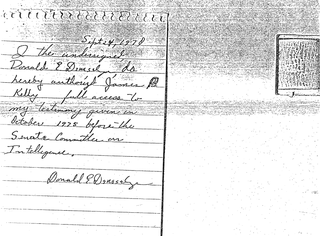 Sept 24, 1978
I the undersigned
Donald E. do
hereby authorize James
Kelly full access to
my testimony given in
October 1975 before the
Senate Committee on
Intelligence.
Donald E.